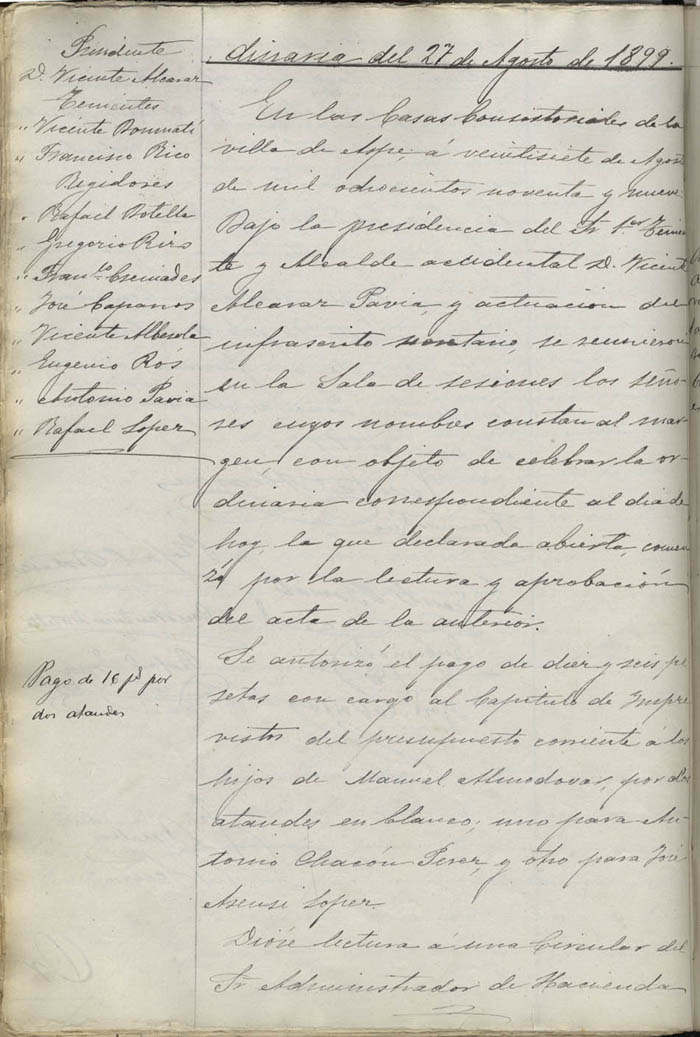 Presidente
D. Vicente Alcaraz
Tenientes
" Vicente Bonmatí
" Francisco Rico
Regidores
" Rafael Botella
" Gregorio Rizo
" Franco. Cremades
" José Caparros
" Vicente Alberola
" Eugenio Ros
" Antonio Pavia
" Rafael Lopez
Pago de 16 ps por
dos ataudes
dinaria del 27 de Agosto de 1899.
En las Casas Consistoriales de la
villa de Aspe, á veintisiete de Agosto
de mil ochocientos noventa y nueve.
Bajo la presidencia del Sr 1er Tenien-
te y Alcalde accidental D. Vicente
Alcaraz Pavia, y actuación del
infrascrito secretario, se reunieron
en la Sala de sesiones los seño-
res cuyos nombres constan al mar-
gen, con objeto de celebrar la or-
dinaria correspondiente al dia de
hoy, la que declarada abierta, comen-
zó por la lectura y aprobación
del acta de la anterior.
Se autorizó el pago de diez y seis pe
setas con cargo al Capitulo de Impre
vistos del presupuesto corriente á los
hijos de Manuel Almodovar, por dos
ataudes en blanco; uno para An-
tonio Chacón Perez, y otro para José
Asensi Lopez.
Dióse lectura á una Circular del
Sr Administrador de Hacienda